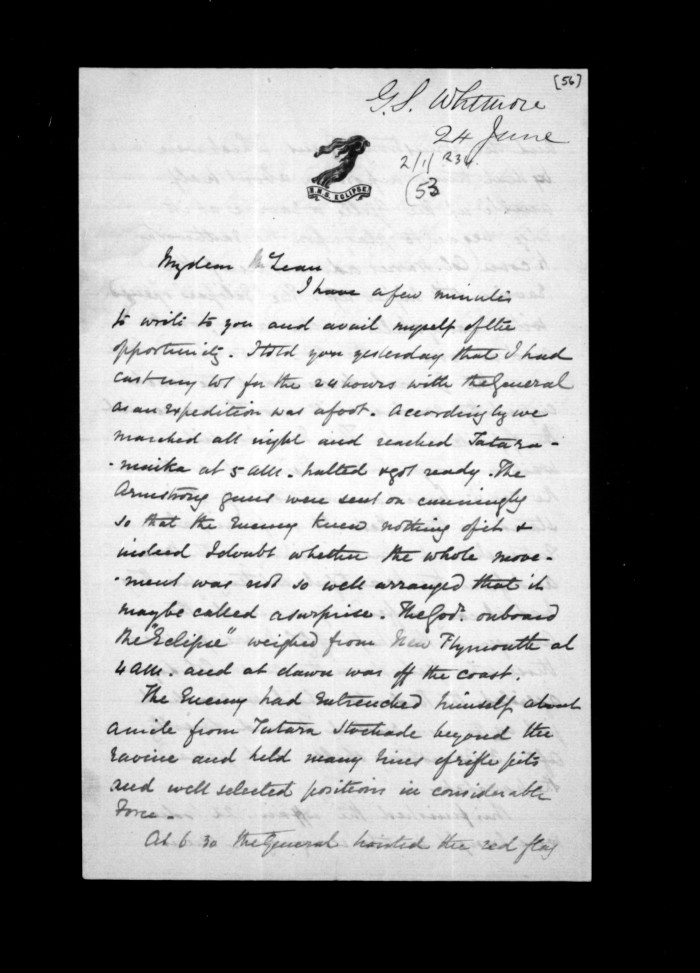 [56]
G. S. Whitmore
24 June
2/1/
(53
H.M.S. ECLIPSE
My dear McLean
I have a few minutes
to write to you and avail myself of the
opportunity. I told you yesterday that I had
cast my lot for the 24 hours with the General
as an expedition was afoot. Accordingly we
marched all night and reached Tatara-
-maika at 5 AM. halted & got ready. The
Armstrong guns were sent on cunningly
so that the Enemy knew nothing of it &
indeed I doubt whether the whole move-
-ment was not so well arranged that it
may be called a surprise. The Govr. onboard
the "Eclipse" weighed from New Plymouth at
4 AM. and at dawn was off the coast.
The Enemy had entrenched himself about
a mile from Tatara Stockade beyond the
ravine and held many lines of rifle pits
and well selected positions in considerable
Force.
At 6 30 the General hoisted the red flag